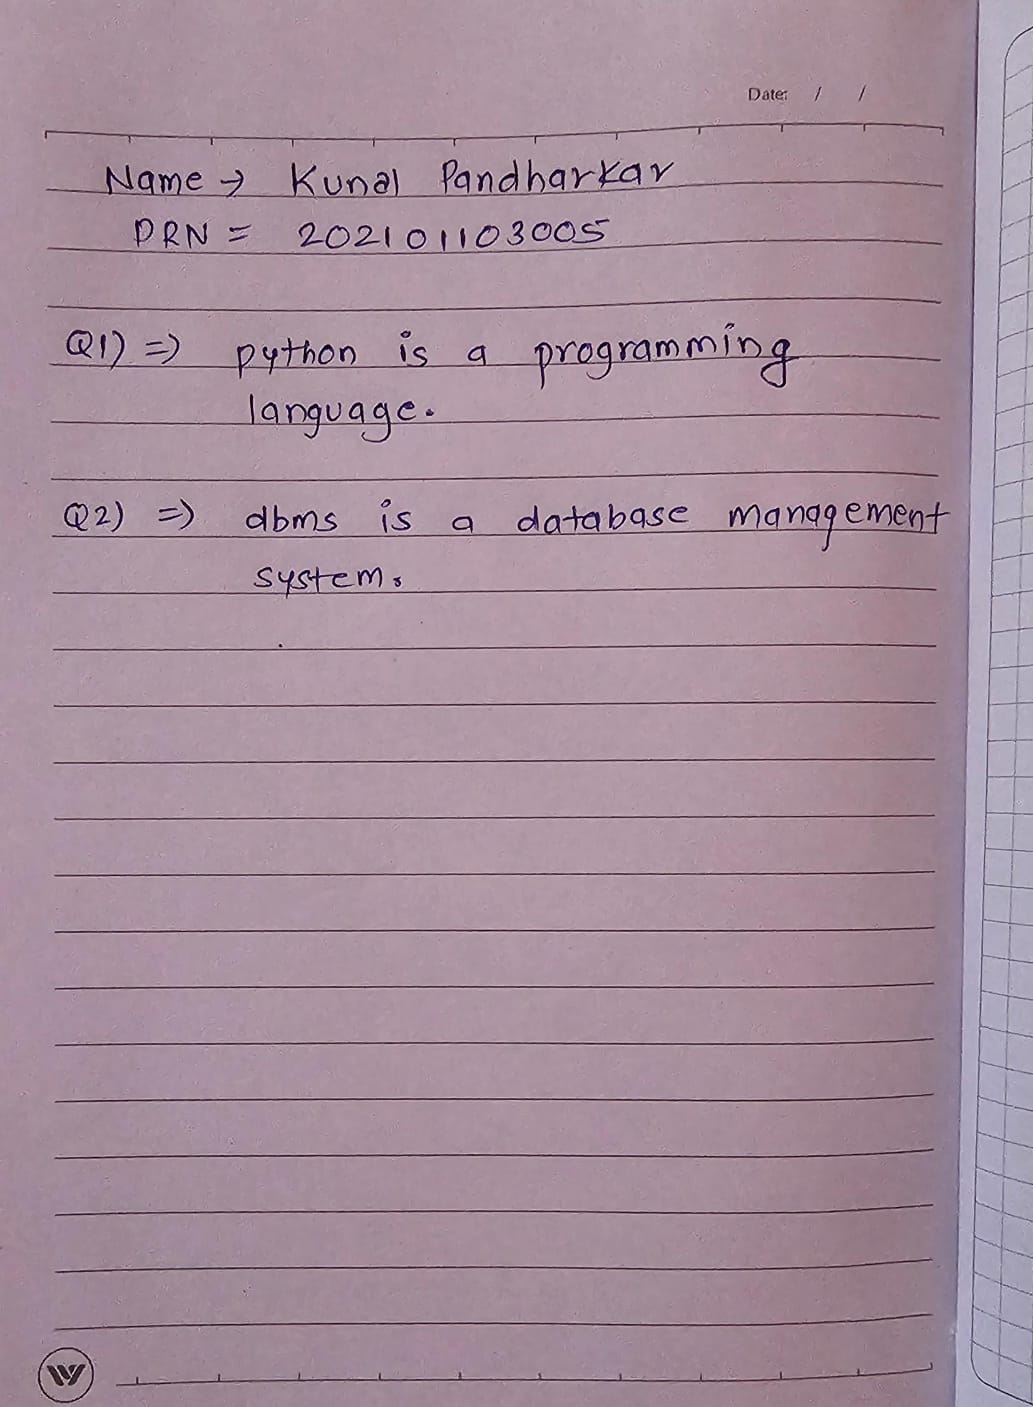 Date: / /
Name → Kunal Pandharkar
PRN = 202101103005
Q1) => python is a programming
language.
Q2) => dbms is a database management
system.
W